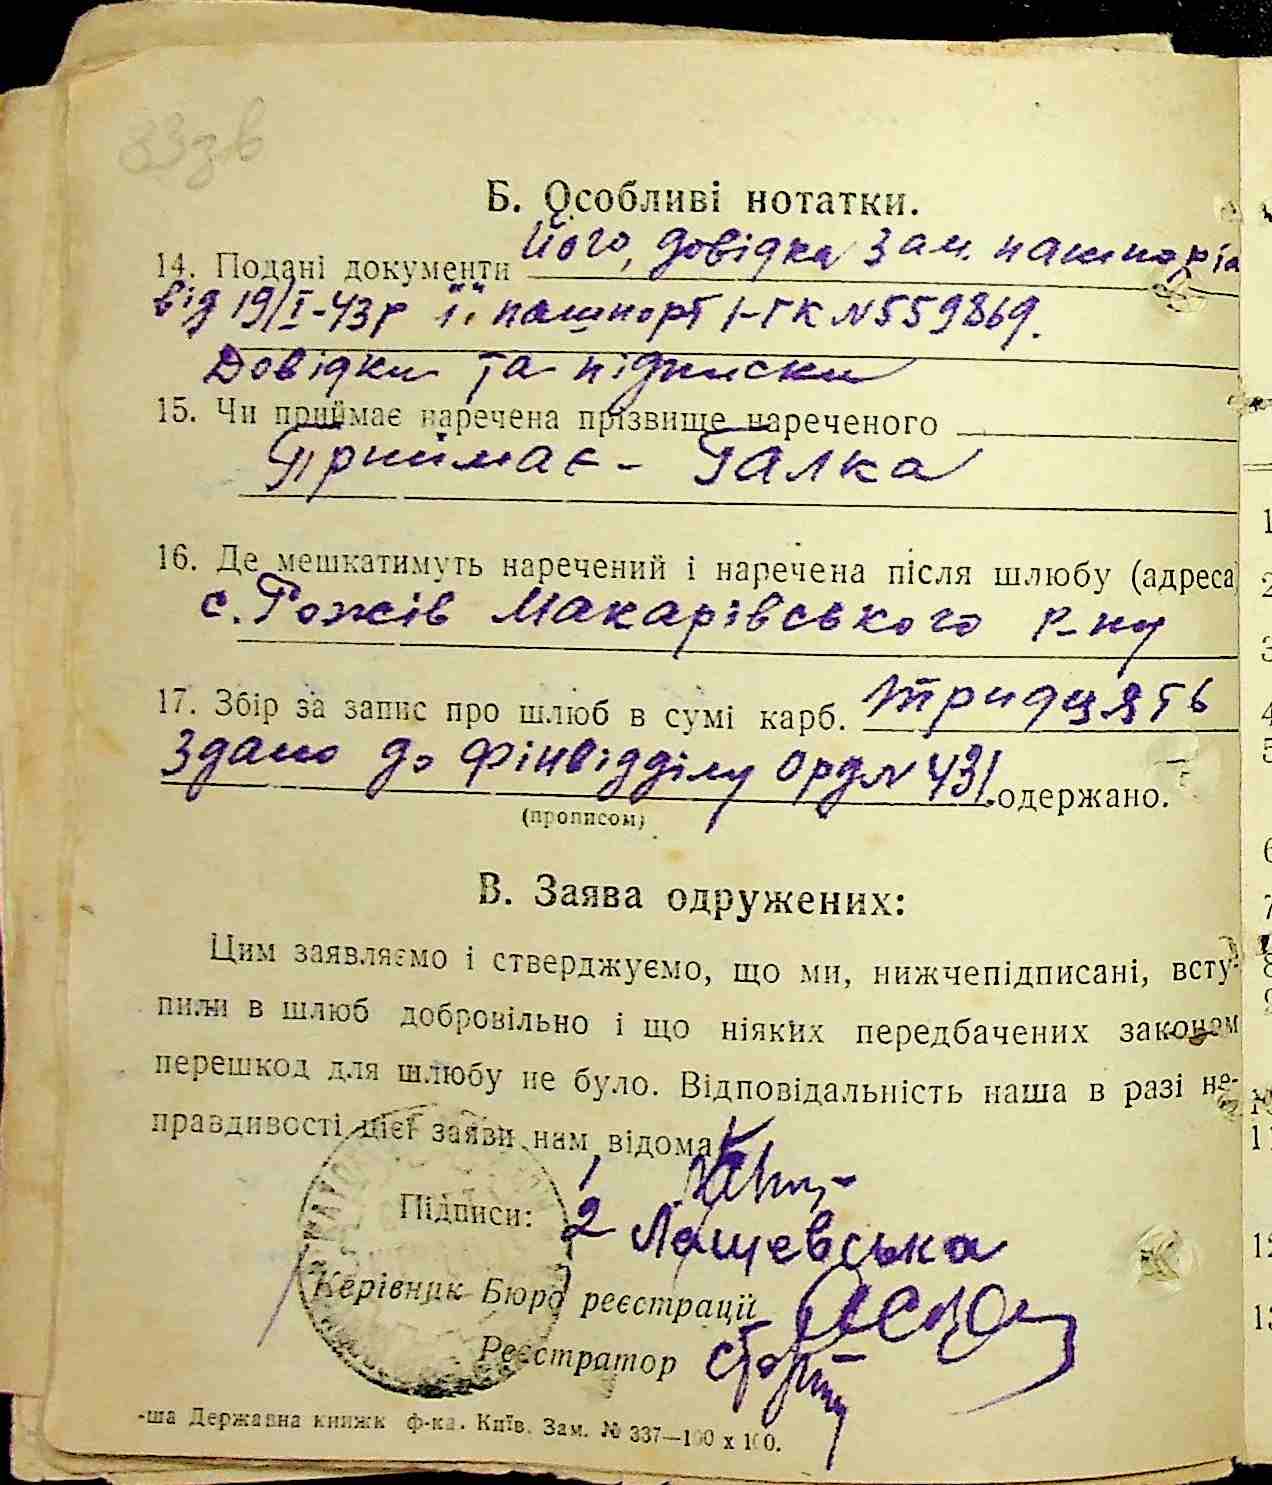 ззв
Б. Особливі нотатки.
14. Подані документи Його, довідка зам. пашпорта
від 19/I-43р її пашпорт І-ГК №559869.
Довідки та підписки
15. Чи приймає наречена прізвище нареченого
Приймає - Галка
16. Де мешкатимуть наречений і наречена після шлюбу (адреса
с. Рожів Макарівського р-ну
17. Збір за запис про шлюб в сумі карб. тридцять
Здано до Фінвідділу Орд № 431. одержано.
(прописом)
В. Заява одружених:
Цим заявляємо і стверджуємо, що ми, нижчепідписані, всту-
пили в шлюб добровільно і що ніяких передбачених законом
перешкод для шлюбу не було. Відповідальність наша в разі не-
правдивості цієї заяви нам відома
Підписи: 1
2 Лашевська
Керівник Бюро реєстрації
Реєстратор
-ша Державна книжк ф-ка. Київ. Зам. № 337—100 х 100.